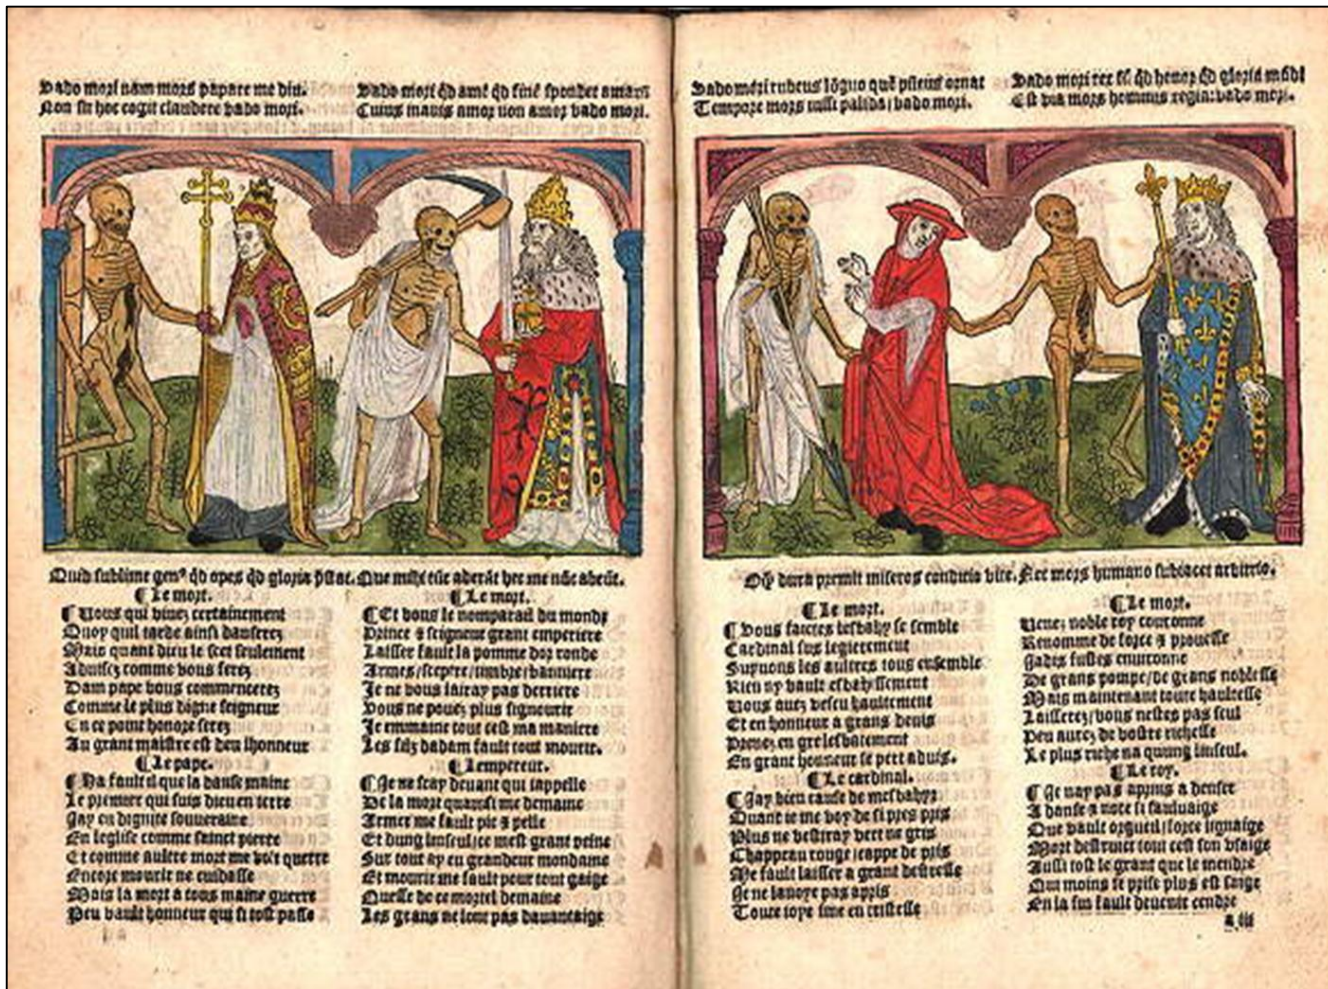 Vado mori nam mors papare me diu.
Non sit hoc cogit claudere vado mori.
Vado mori qd amē qd finē spondet amari
Cuius mavis amor non amor vado mori.
Quid sublime genꝰ qd opes qd gloria p̄stat. Que mihi tūc aderāt hec me nūc abeūt.
¶ Le mort.
¶ Vous qui vivez certainement
Quoy quil tarde ainsi danserez
Mais quant dieu le scet seulement
Advisez comme vous ferez
Dam pape vous commencerez
Comme le plus digne seigneur
En ce point honore serez
Au grant maistre est deu lhonneur
¶ Le pape.
¶ Ha fault il que la danse maine
Le premier qui suis dieu en terre
Jay eu dignite souveraine
En leglise comme sainct pierre
Et comme aultre mort me voit querre
Encore mourir ne cuidasse
Mais la mort a tous maine guerre
Peu vault honneur qui si tost passe
¶ Le mort.
¶ Et vous le nomparail du monde
Prince & seigneur grant emperiere
Laisser fault la pomme dor ronde
Armes/sceptre/timbre/banniere
Je ne vous lairay pas derriere
Vous ne pouez plus signourir
Je emmaine tout cest ma maniere
Les filz dadam fault tout mourir.
¶ Lempereur.
¶ Je ne scay devant qui jappelle
De la mort quansi me demaine
Armer me fault pic & pelle
Et dung linseul/ce mest grant peine
Sur tout ay eu grandeur mondaine
Et mourir me fault pour tout gaige
Quesse de ce mortel demaine
Les grans ne lont pas davantaige
Vado mori rubeus lōguo quē
ornat
Tempore mors
palida/vado mori.
Vado mori rex sū qd honor qd gloria mūdi
Est via mors hominis regia: vado mori.
dura premit miseros conditio vite. Nec mors humano subiacet arbitrio.
¶ Le mort.
¶ Vous faictes lesbahy se semble
Cardinal sus legierement
Suyvons les aultres tous ensemble
Rien ny vault esbahyssement
Vous avez vescu haultement
Et en honneur a grans devis
Prenez en gre lesbatement
En grant honneur se pert advis.
¶ Le cardinal.
¶ Jay bien cause de mesbahyr
Quant ie me voy de si pres pris
Plus ne vestiray vert ne gris
Chappeau rouge/cappe de pris
Me fault laisser a grant destresse
Je ne lavoye pas apris
Toute ioye fine en tristesse
¶ Le mort.
Venez noble roy couronne
Renomme de force & prouesse
Jadis fustes environne
De grans pompe/de grans noblesse
Mais maintenant toute haultesse
Laisserez/vous nestes pas seul
Peu aurez de vostre richesse
Le plus riche na quung linseul.
¶ Le roy.
¶ Je nay pas apris a denser
A danse & note si sauluaige
Que vault orgueil/force lignaige
Mort destruict tout cest son vsaige
Aussi tost le grant que le mendre
Qui moins se prise plus est saige
En la fin fault devenir cendre
a iii